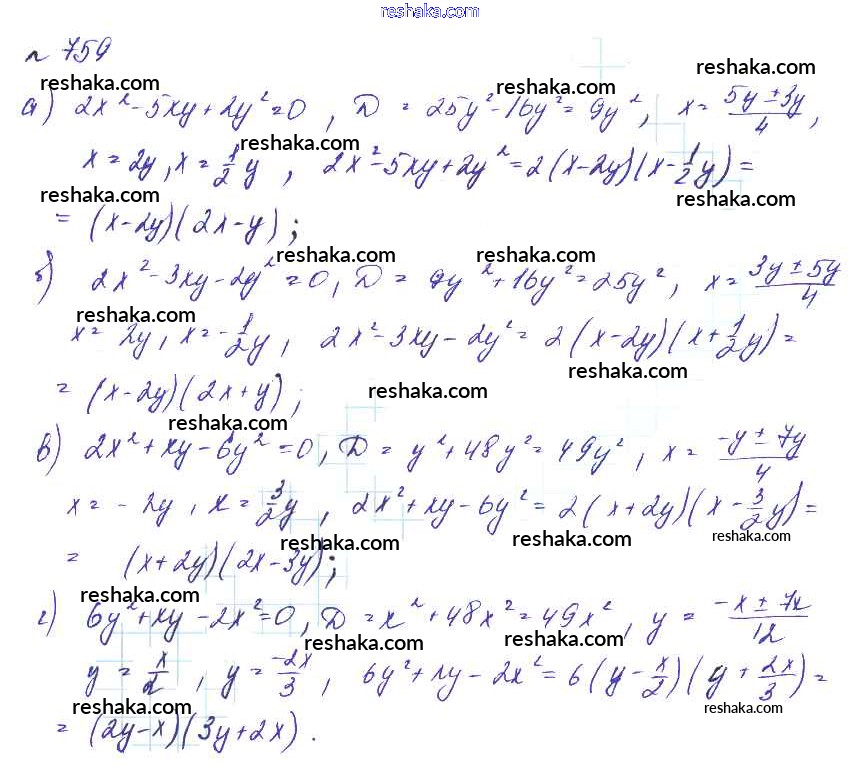 reshaka.com
№ 759
reshaka.com reshaka.com
а) 2x² - 5xy + 2y² = 0, D = 25y² - 16y² = 9y², x = (5y ± 3y)/4,
reshaka.com
x = 2y, x = 1/2 y, 2x² - 5xy + 2y² = 2(x - 2y)(x - 1/2 y) =
reshaka.com reshaka.com
= (x - 2y)(2x - y);
reshaka.com reshaka.com
б) 2x² - 3xy - 2y² = 0, D = 9y² + 16y² = 25y², x = (3y ± 5y)/4
reshaka.com
x = 2y, x = -1/2 y, 2x² - 3xy - 2y² = 2(x - 2y)(x + 1/2 y) =
reshaka.com
= (x - 2y)(2x + y);
reshaka.com
reshaka.com
в) 2x² + xy - 6y² = 0, D = y² + 48y² = 49y², x = (-y ± 7y)/4
reshaka.com
x = -2y, x = 3/2 y, 2x² + xy - 6y² = 2(x + 2y)(x - 3/2 y) =
reshaka.com reshaka.com reshaka.com
= (x + 2y)(2x - 3y);
reshaka.com
г) 6y² + xy - 2x² = 0, D = x² + 48x² = 49x², y = (-x ± 7x)/12
reshaka.com reshaka.com
y = x/2, y = -2x/3, 6y² + xy - 2x² = 6(y - x/2)(y + 2x/3) =
reshaka.com reshaka.com
= (2y - x)(3y + 2x).